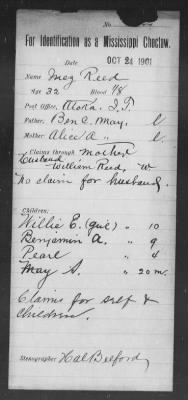 No.
For Identification as a Mississippi Choctaw.
OCT 24 1901
Name Meg Reed
Age 32 Blood 1/8
Post Office, Atoka. I.T.
Father, Ben C. May. l
Mother, Alice A " l
Claims through mother
Husband
William Reed, W
No claim for husband.
Children:
Willie E. (girl) " 10
Benjamin A. " 9
Pearl " 4
May A. " 20 m.
Claims for self &
children.
Stenographer Hal Belford